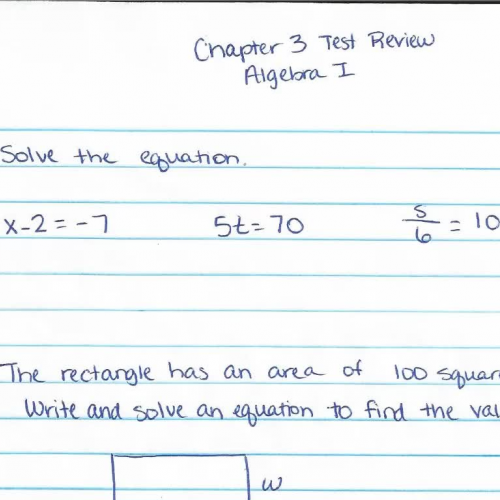 Chapter 3 Test Review
Algebra I
Solve the equation.
x-2 = -7 5t = 70 s/6 = 10
The rectangle has an area of 100 squar
Write and solve an equation to find the val
w